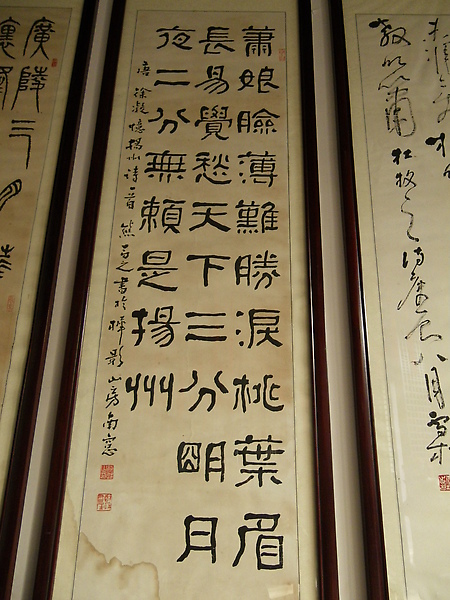 教吹簫
杜牧之詩
八月雪村
蕭娘臉薄難勝淚桃葉眉
長易覺愁天下三分明月
夜二分無賴是揚州
唐徐凝憶揚州詩一首熊百之書於暉影山房南窓
廣陵三月